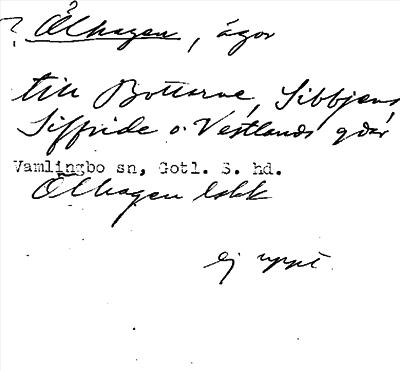 ? Ölhagen, ägor
till Bottarve, Sibbjens,
Siffride o. Vestlands gdar
Vamlingbo sn, Gotl. S. hd.
Ölhagen lakk
ej uppt.